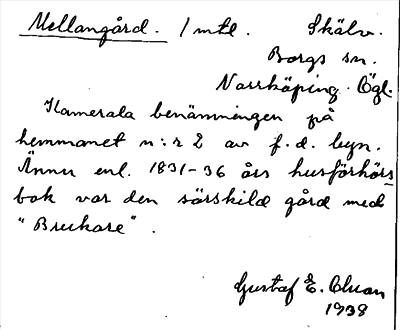 Mellangård. 1 mtl. Skälv.
Borgs sn.
Norrköping. Ögl.
Kamerala benämningen på
hemmanet n:r 2 av f.d. byn.
Ännu enl. 1831-36 års husförhörs-
bok var den särskild gård med
"Brukare".
Gustaf E.
1938